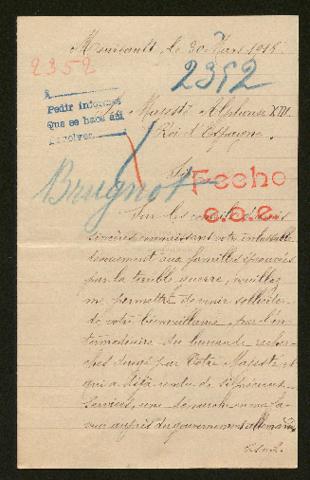 le 30 Mars 1916.
2352
2352
Pedir informes
Que se haga así
Resolver
Majesté Alphonse XIII
Roi d'Espagne.
Sire
Brugnot
Fecho
c.o.e.
Sur les conseils d'amis
sincères connaissant votre inlassable
dévouement aux familles éprouvées
par la terrible guerre, veuillez
me permettre de venir solliciter
de votre bienveillance, par l'in-
termédiaire du bureau de recher-
ches dirigé par Votre Majesté, et
qui a déjà rendu de si précieux
services, une démarche en ma fa-
veur auprès du gouvernement allemand